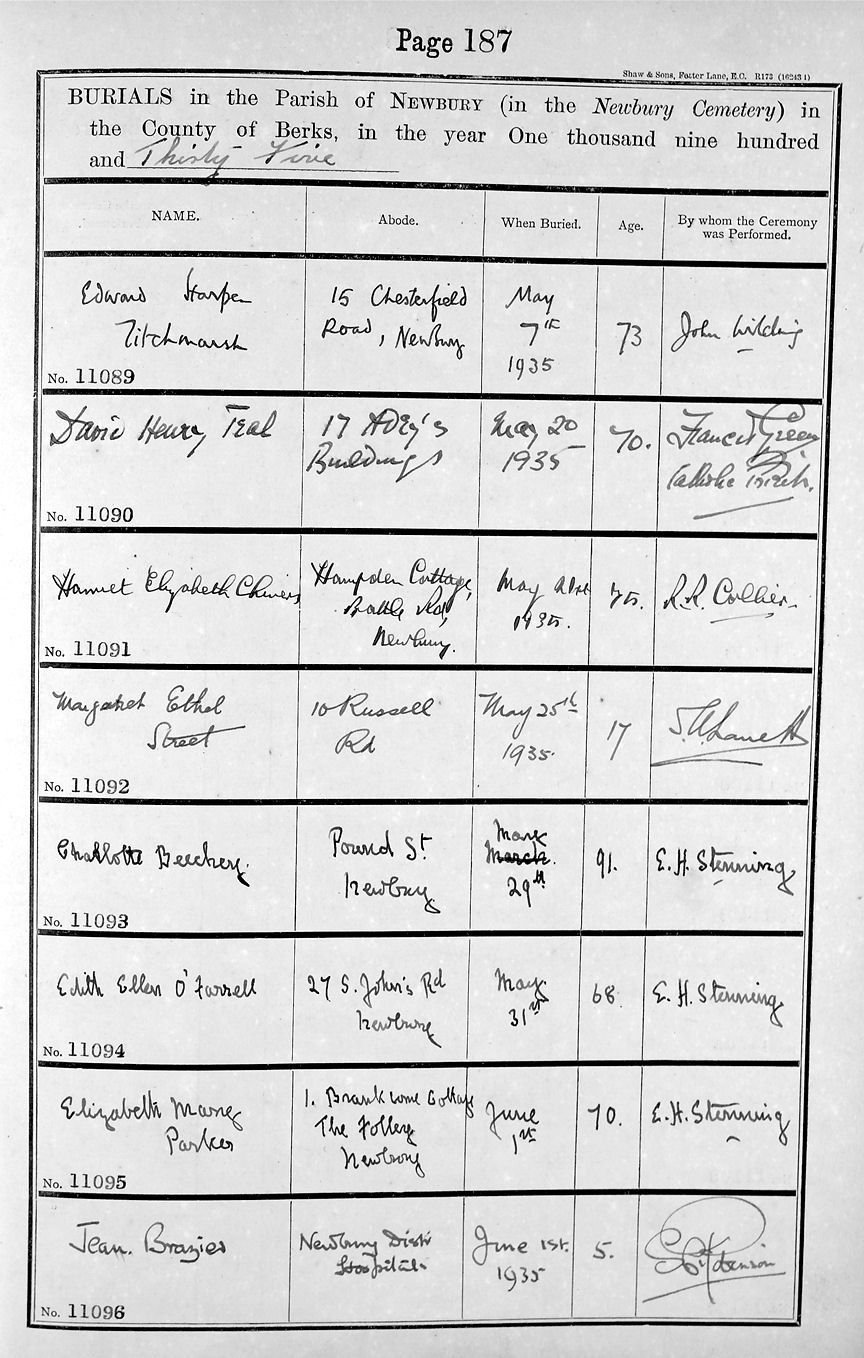 Page 187
Shaw & Sons, Fetter Lane, E.C. R173 (16243 1)
BURIALS in the Parish of NEWBURY (in the Newbury Cemetery) in
the County of Berks, in the year One thousand nine hundred
and Thirty Five
NAME. Abode. When Buried. Age. By whom the Ceremony
was Performed.
Edward Harper
Titchmarsh
15 Chesterfield
Road, Newbury
May
7th
1935
73
John Wilding
No. 11089
David Henry Teal
17 Adey's
Buildings
May 20
1935
70.
Francis Green
Catholic Priest.
No. 11090
Harriet Elizabeth Chivers
Hampden Cottage,
Battle Rd,
Newbury.
May 21st
1935.
75.
R.R. Collier.
No. 11091
Margaret Ethel
Street
10 Russell
Rd
May 25th
1935.
17
No. 11092
Charlotte Beechey.
Pound St
Newbury
May
March.
29th
91.
E. H. Stenning
No. 11093
Edith Ellen O'Farrell
27 S. John's Rd
Newbury
May
31st
68
E. H. Stenning
No. 11094
Elizabeth Mary
Parker
1. Branksome Cottage
The Folley
Newbury
June
1st
70.
E. H. Stenning
No. 11095
Jean. Brazier
Newbury Dist
Hospital.
June 1st.
1935
5.
No. 11096